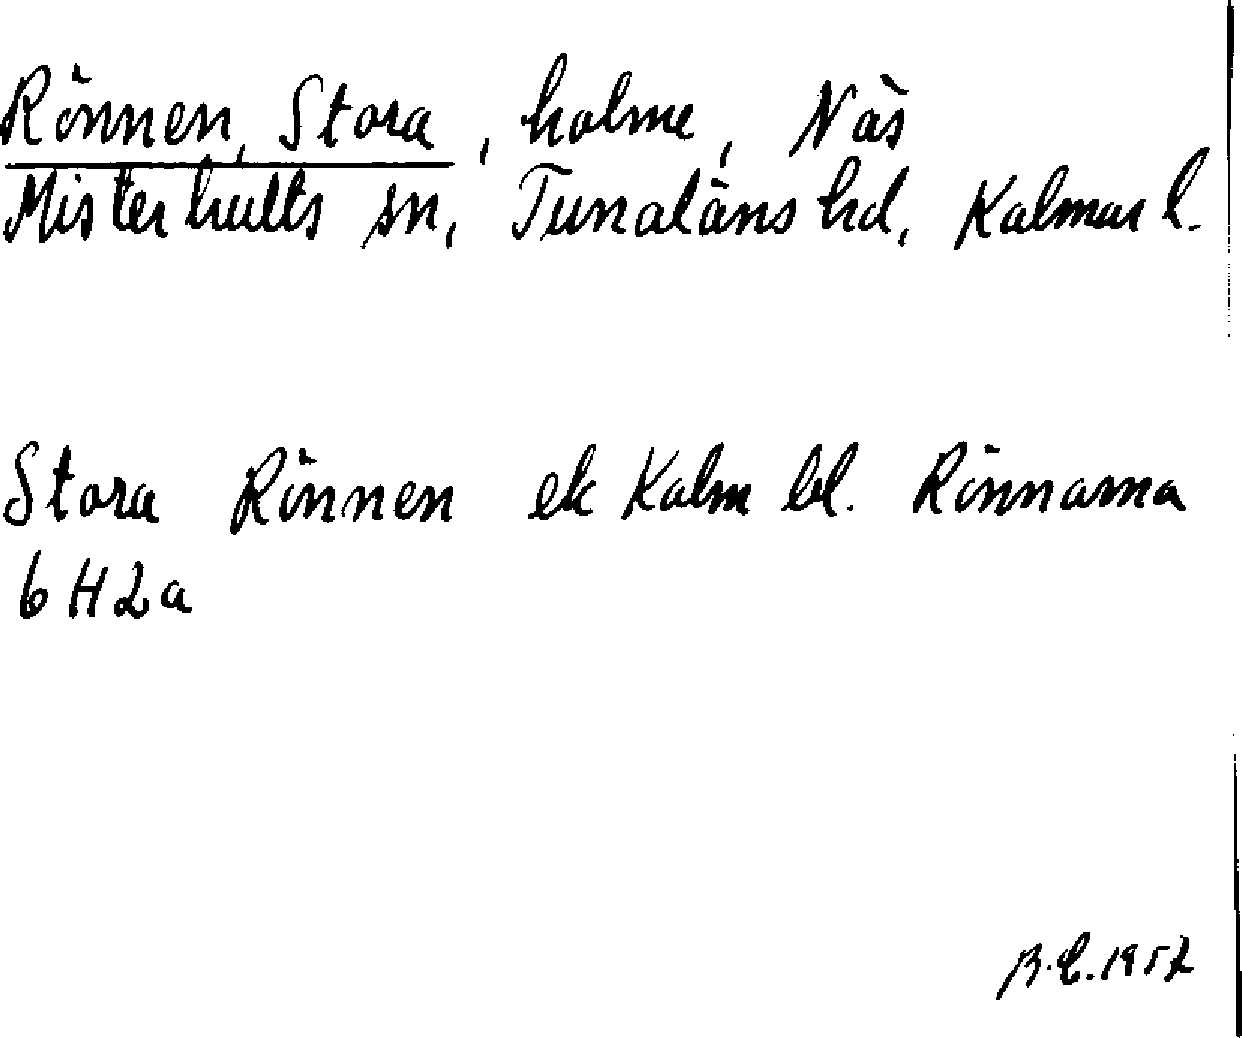 Rönnen, Stora, holme, Näs
Misterhults sn, Tunaläns hd, Kalmar l.
Stora Rönnen ek Kalm bl. Rönnarna
6 H 2 a
B.E. 1957